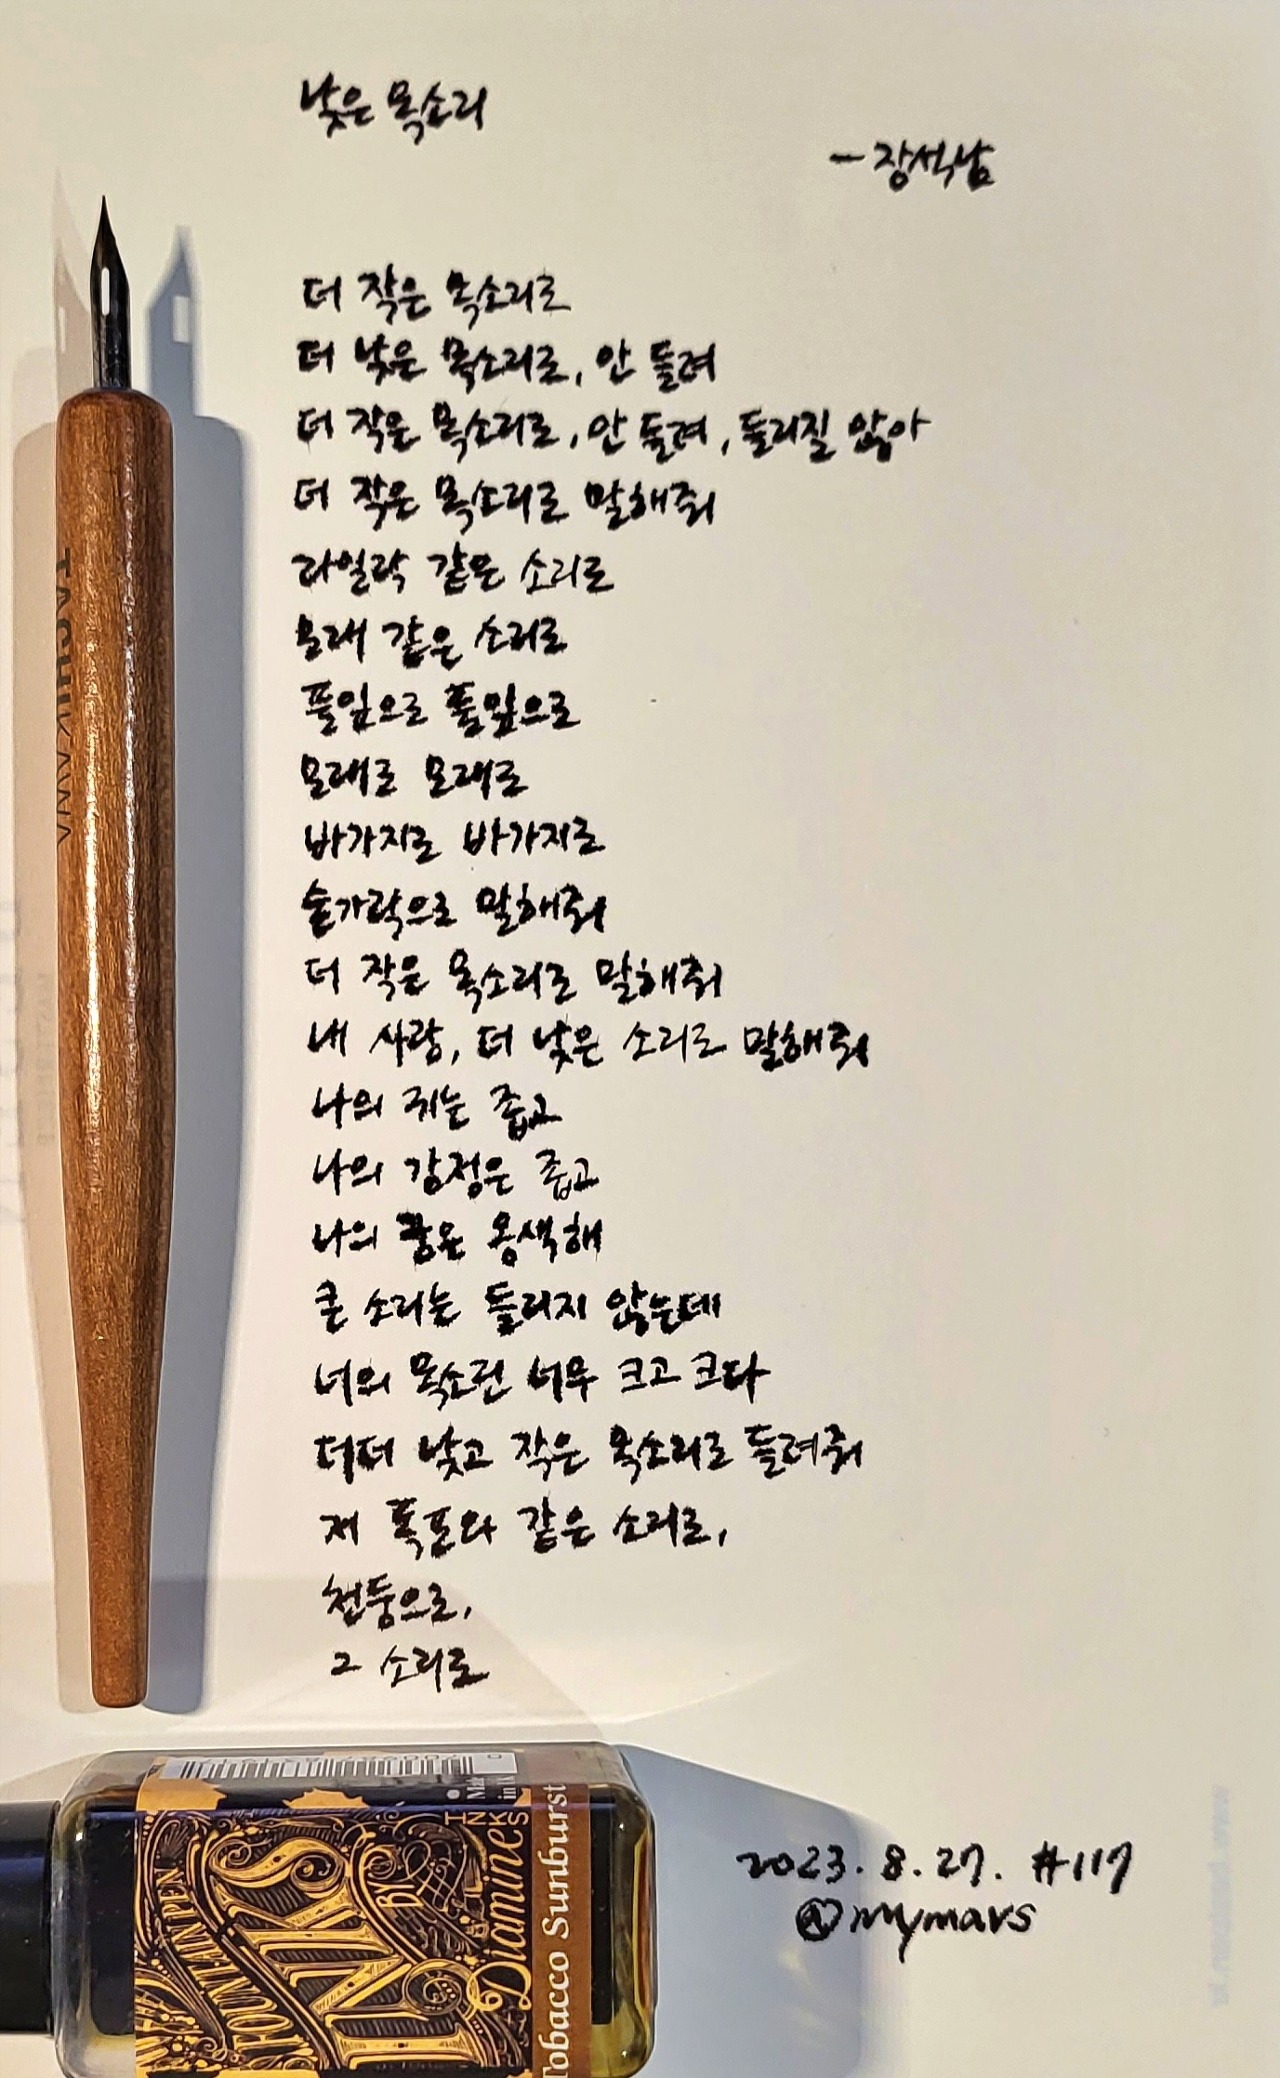 낮은 목소리
- 장석남
더 작은 목소리로
더 낮은 목소리로, 안 들려
더 작은 목소리로, 안 들려, 들리질 않아
더 작은 목소리로 말해줘
라일락 같은 소리로
모래 같은 소리로
풀잎으로 풀잎으로
모래로 모래로
바가지로 바가지로
숟가락으로 말해줘
더 작은 목소리로 말해줘
내 사랑, 더 낮은 소리로 말해줘
나의 귀는 좁고
나의 감정은 좁고
나의 꿈은 옹색해
큰 소리는 들리지 않는데
너의 목소린 너무 크고 크다
더더 낮고 작은 목소리로 들려줘
저 폭포와 같은 소리로,
천둥으로,
그 소리로
2023. 8. 27. #117
@mymars
TACHIKAWA
FOUNTAIN PEN
INKS
BY
Diamine
INKS
Tobacco Sunburst